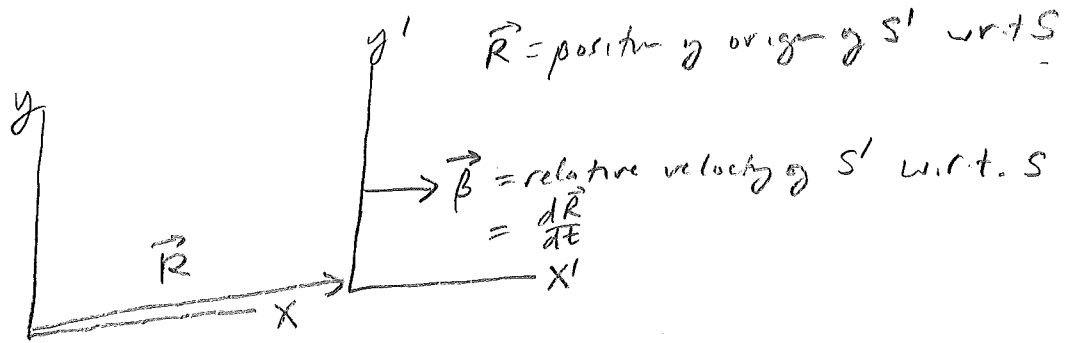 y
y'
R⃗ = position of origin of S' w.r.t S
β⃗ = relative velocity of S' w.r.t. S
= dR⃗/dt
R⃗
X
X'